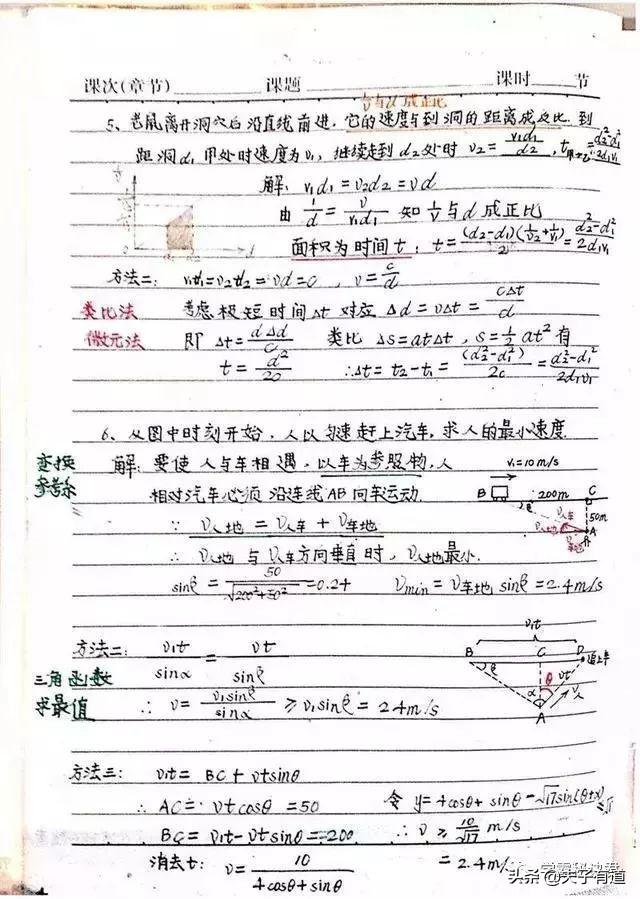 课次(章节) 课题 课时 节
1/v与d成正比
5、老鼠离开洞穴后沿直线前进，它的速度与到洞的距离成反比，到
距洞d₁甲处时速度为v₁，继续走到d₂处时 v₂=v₁d₁/d₂，t甲→乙=(d₂²-d₁²)/2d₁v₁
解：v₁d₁=v₂d₂=vd
由 1/d=v/v₁d₁ 知1/v与d成正比
面积为时间t：t=(d₂-d₁)(1/v₂+1/v₁)/2=(d₂²-d₁²)/2d₁v₁
方法二： =vd=c，v=c/d
类比法 考虑极短时间Δt 对应 Δd=vΔt=cΔt/d
微元法 即 Δt=dΔd/c 类比 Δs=atΔt，s=½at² 有
t=d²/2c ∴Δt=t₂-t₁=(d₂²-d₁²)/2c=(d₂²-d₁²)/2d₁v₁
6、从图中时刻开始，人以匀速赶上汽车，求人的最小速度
变换 解：要使人与车相遇，以车为参照物，人 v₁=10m/s
参考系 相对汽车必须沿连线AB向车运动. B 200m C
β 50m
∵ v人地=v人车+v车地 v人车 v人地 A
∴ v人地与v人车方向垂直时，v人地最小. v车地
sinβ=50/√(200²+50²)=0.24 vmin=v车地sinβ=2.4m/s
方法二： v₁t/sinα=vt/sinβ v₁t
B C D 追上车
三角函数 β θ vt
求最值 ∴ v=v₁sinβ/sinα ≥v₁sinβ=2.4m/s α v人
A
方法三： v₁t=BC+vtsinθ
∴ AC=vtcosθ=50 令 y=4cosθ+sinθ=√17sin(θ+α)≤√17
BC=v₁t-vtsinθ=200 ∴ v≥10/√17 m/s
消去t： v=10/(4cosθ+sinθ) =2.4m/s
头条@夫子有道